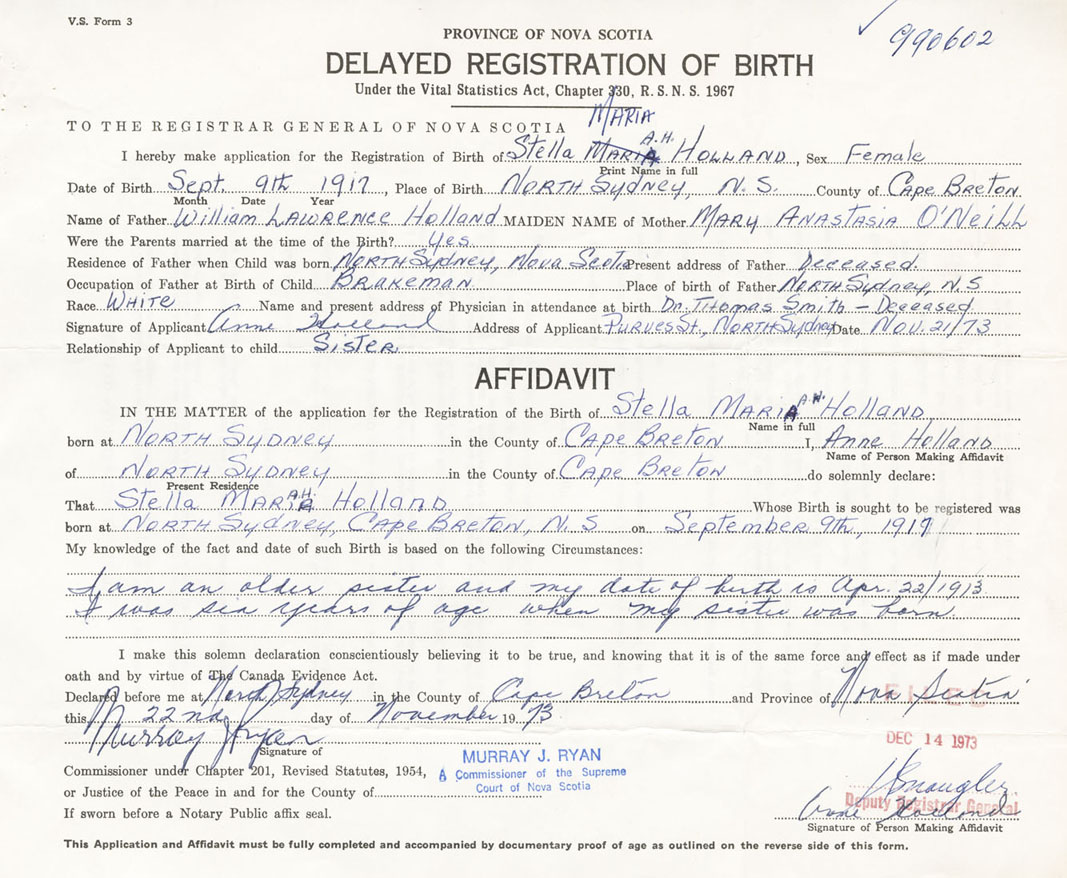 V.S. Form 3
990602
PROVINCE OF NOVA SCOTIA
DELAYED REGISTRATION OF BIRTH
Under the Vital Statistics Act, Chapter 330, R. S. N. S. 1967
MARIA
TO THE REGISTRAR GENERAL OF NOVA SCOTIA
A.H.
I hereby make application for the Registration of Birth of Stella MARIA HOLLAND, Sex Female
Print Name in full
Date of Birth Sept. 9th 1917, Place of Birth NORTH SYDNEY, N.S. County of CAPE BRETON
Month Date Year
Name of Father William LAWRENCE Holland MAIDEN NAME of Mother MARY ANASTASIA O'NEILL
Were the Parents married at the time of the Birth? Yes
Residence of Father when Child was born NORTH SYDNEY, NOVA SCOTIA Present address of Father Deceased.
Occupation of Father at Birth of Child BRAKEMAN Place of birth of Father NORTH SYDNEY, N.S
Race WHITE Name and present address of Physician in attendance at birth Dr. THOMAS SMITH – Deceased
Signature of Applicant Anne Holland Address of Applicant PURVES St., NORTH SYDNEY Date NOV. 21/73
Relationship of Applicant to child SISTER
AFFIDAVIT
A.H.
IN THE MATTER of the application for the Registration of the Birth of Stella MARIA HOLLAND
Name in full
born at NORTH SYDNEY in the County of CAPE BRETON I, Anne Holland
Name of Person Making Affidavit
of NORTH SYDNEY in the County of CAPE BRETON do solemnly declare:
Present Residence
A.H.
That Stella MARIA Holland Whose Birth is sought to be registered was
born at NORTH SYDNEY, CAPE BRETON, N.S on September 9th, 1917
My knowledge of the fact and date of such Birth is based on the following Circumstances:
I am an older sister and my date of birth is Apr. 22/1913
I was six years of age when my sister was born.
I make this solemn declaration conscientiously believing it to be true, and knowing that it is of the same force and effect as if made under
oath and by virtue of The Canada Evidence Act.
Declared before me at North Sydney in the County of Cape Breton and Province of Nova Scotia
this 22nd day of November 1973
FILED
DEC 14 1973
Murray J Ryan
Signature of
MURRAY J. RYAN
A Commissioner of the Supreme
Court of Nova Scotia
Commissioner under Chapter 201, Revised Statutes, 1954,
or Justice of the Peace in and for the County of
Deputy Registrar General
Anne Holland
If sworn before a Notary Public affix seal.
Signature of Person Making Affidavit
This Application and Affidavit must be fully completed and accompanied by documentary proof of age as outlined on the reverse side of this form.